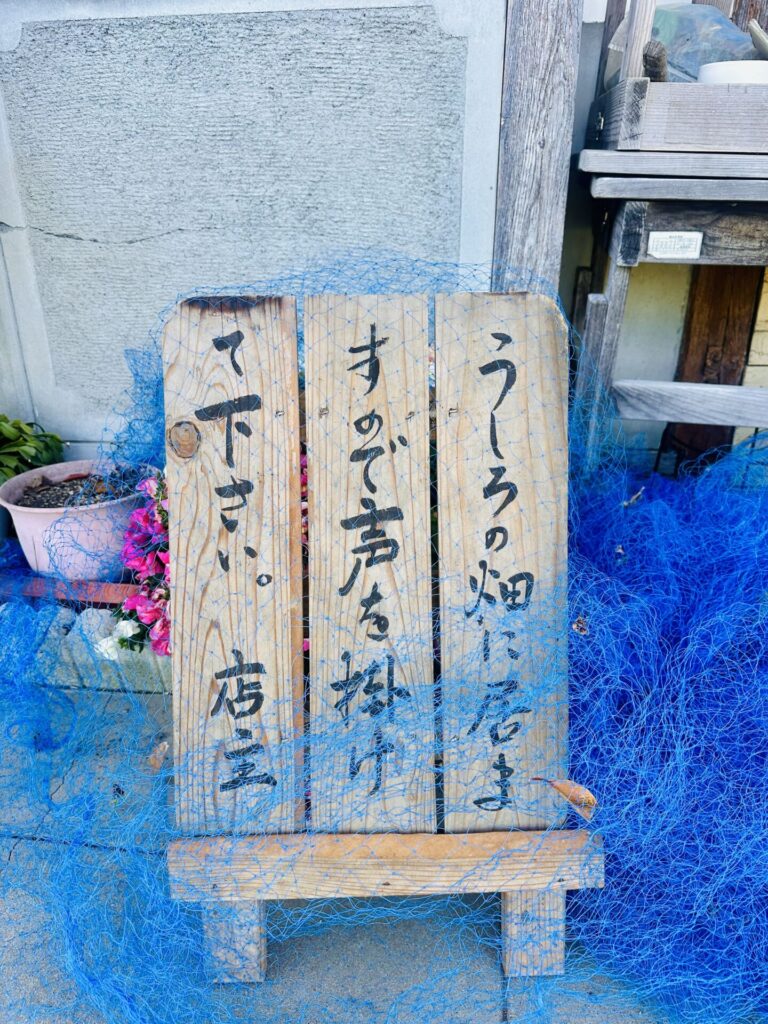 うしろの畑に居ま
すので声を掛け
て下さい。 店主